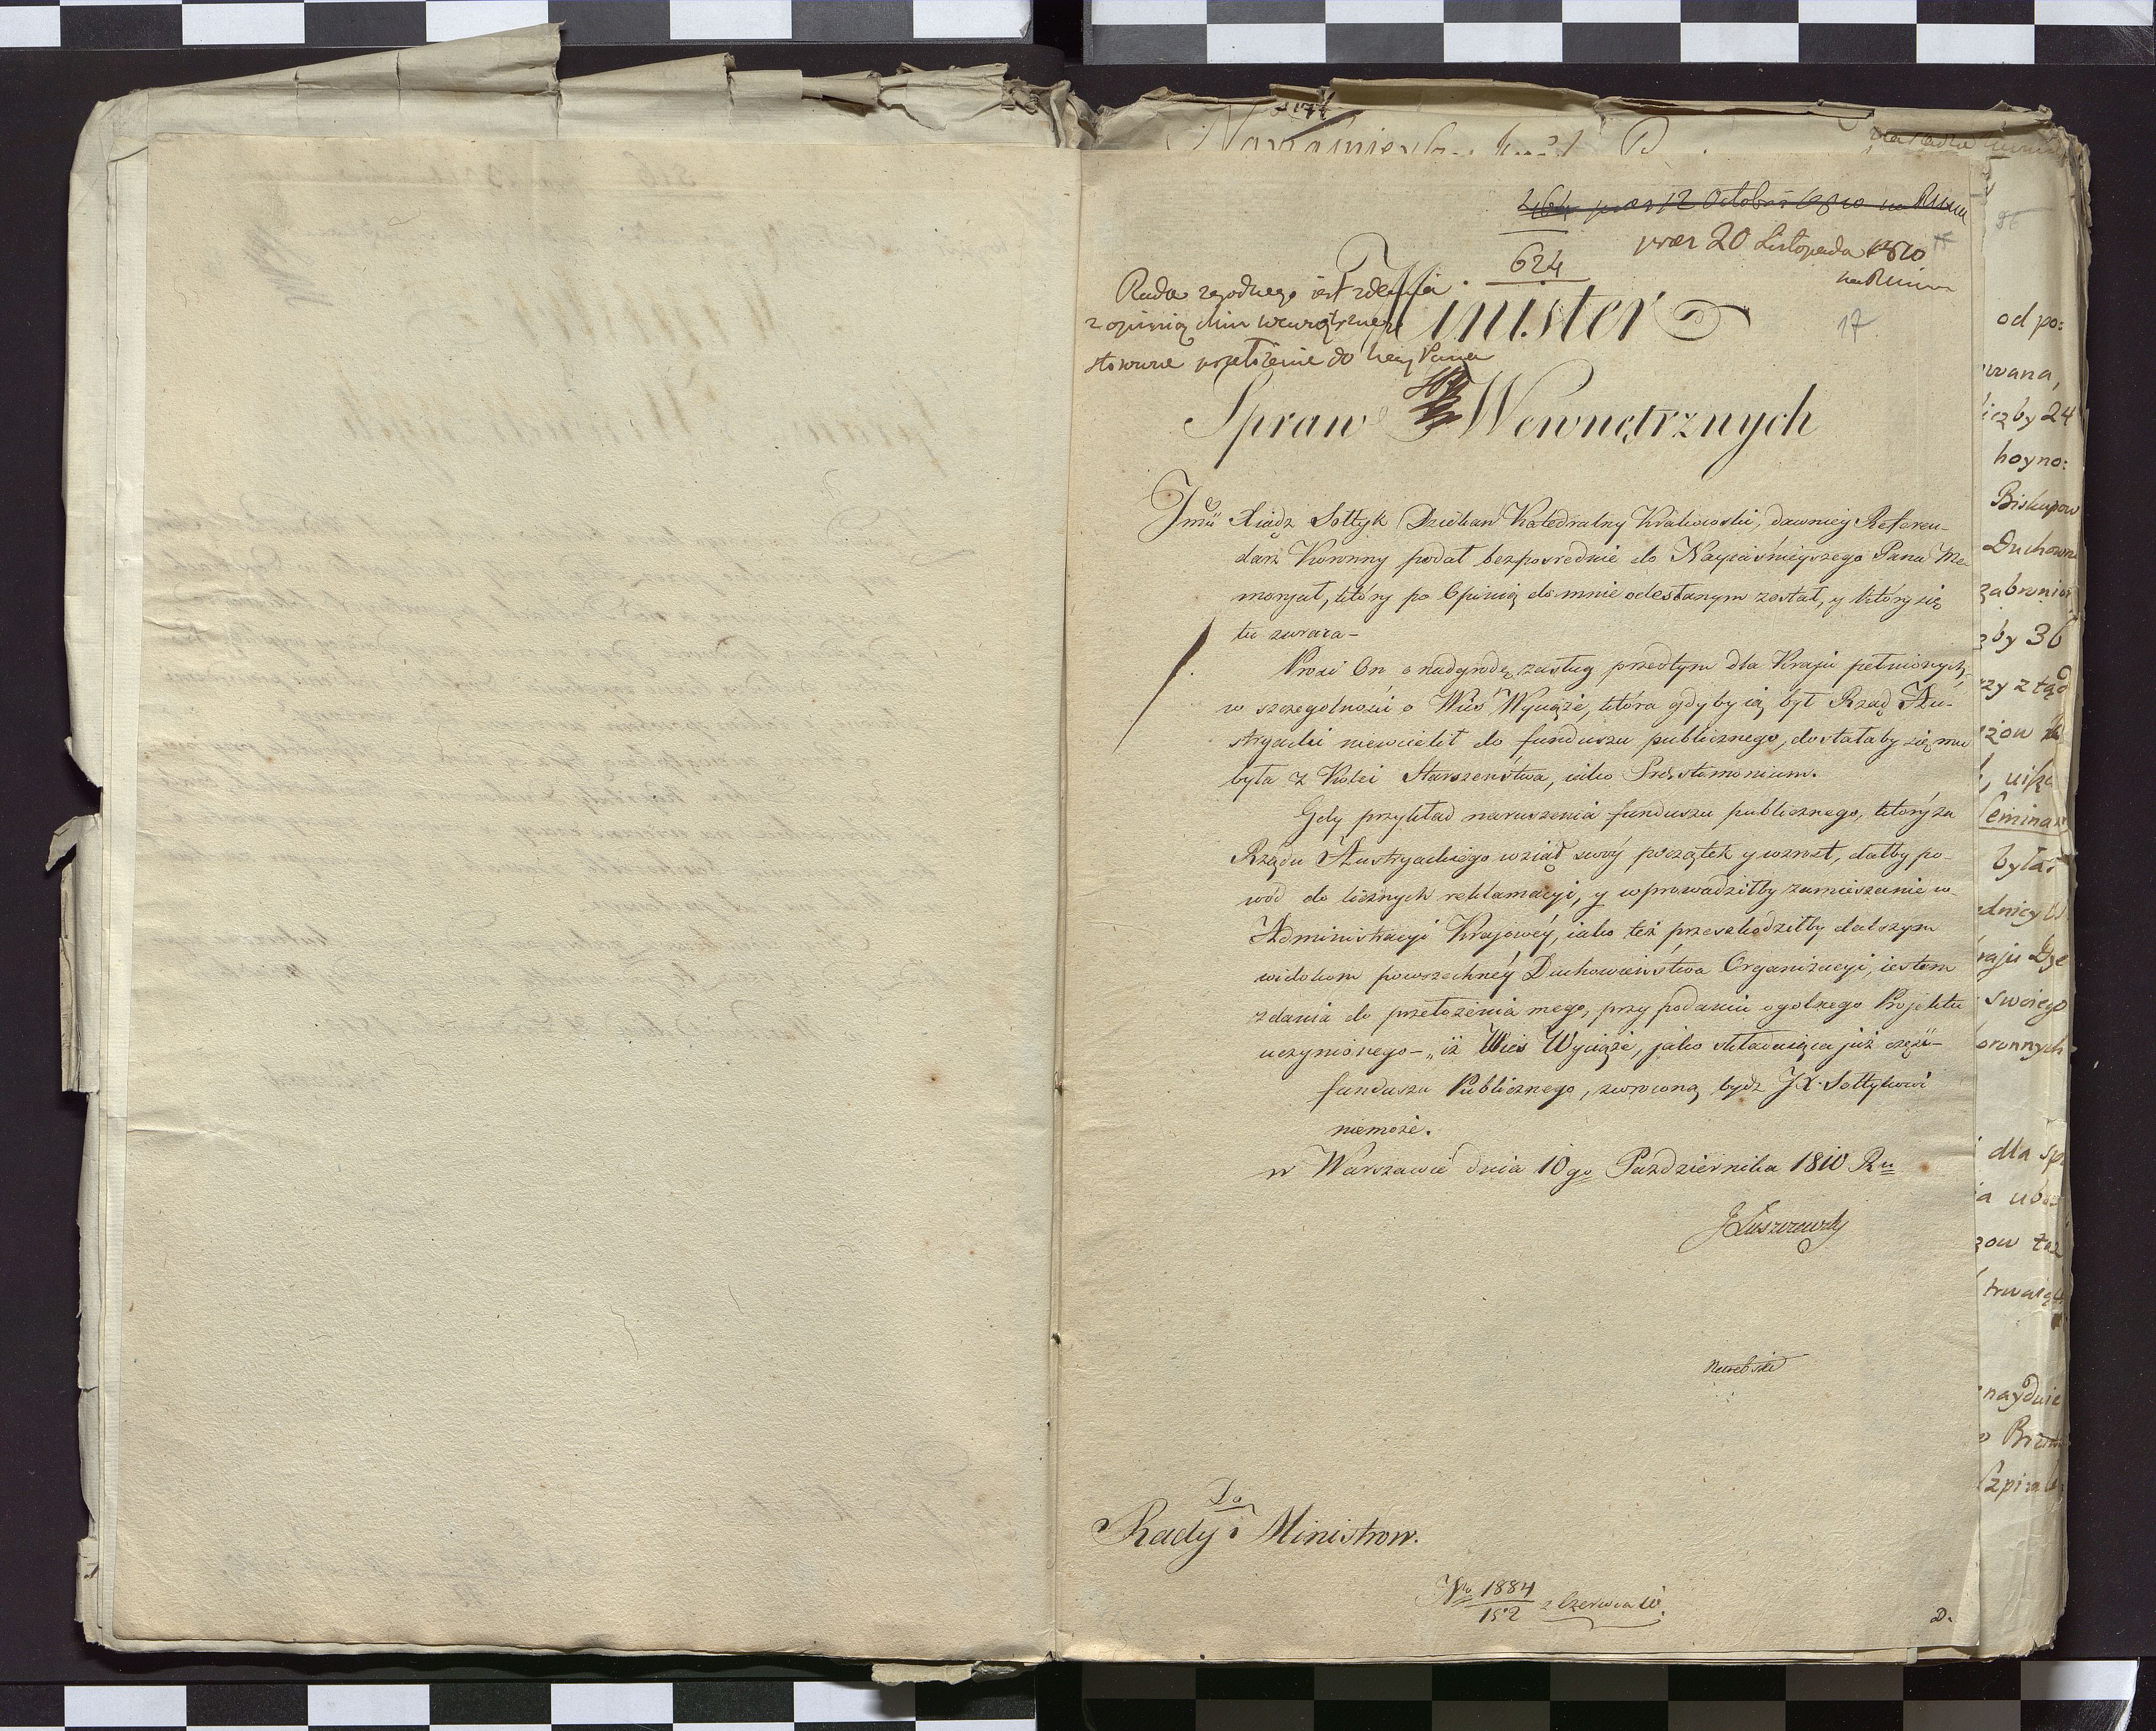 464 praes 12 Octobris 1810 na Rminn
praes 20 Listopada 1810
na Rminn
624
17
Rada zgodnego iest zdania
z opinią Min Wewnętrznego
stosowne przełożenie do Nay Pana
Minister
Spraw Wewnętrznych
Jmć Xiądz Sołtyk Dziekan Katedralny Krakowski, dawniey Referen-
darz Koronny podał bezposrednie do Nayiaśnieyszego Pana Me-
moryał, który po Opinią do mnie odesłanym został, y który się
tu zwraca –
Prosi On o nadgrodę zasług przedtym dla Kraju pełnionych,
w szczegolności o Wieś Wyciąże, która gdyby ią był Rząd Au-
stryacki niewcielił do funduszu publicznego, dostałaby się mu
była z Kolei Starszeństwa, iako Prestimonium.
Gdy przykład naruszenia funduszu publicznego, który za
Rządu Austryackiego wziął swóy początek y wzrost, dałby po-
wód do licznych reklamacyi, y wprowadziłby zamieszanie w
Administracyi Krajowéy, iako też przeszkodziłby dalszym
widokom powszechnéy Duchowieństwa Organizacyi, iestem
zdania do przełożenia mego, przy podaniu ogolnego Projektu
uczynionego – „iż Wieś Wyciąże, jako składaiąca już część
funduszu Publicznego, zwroconą bydz JX. Sołtykowi
niemoże.
w Warszawie dnia 10go Pazdziernika 1810 Ru
J Łuszczewski
Do
Rady Ministrow.
No 1884/152 z Czerwca W.
D.
od po:
wana,
iczby 24
hoyno:
Biskupow
Duchown
zby 36
Seminar
była
swoiego
oronnych
dla sp
nayduie